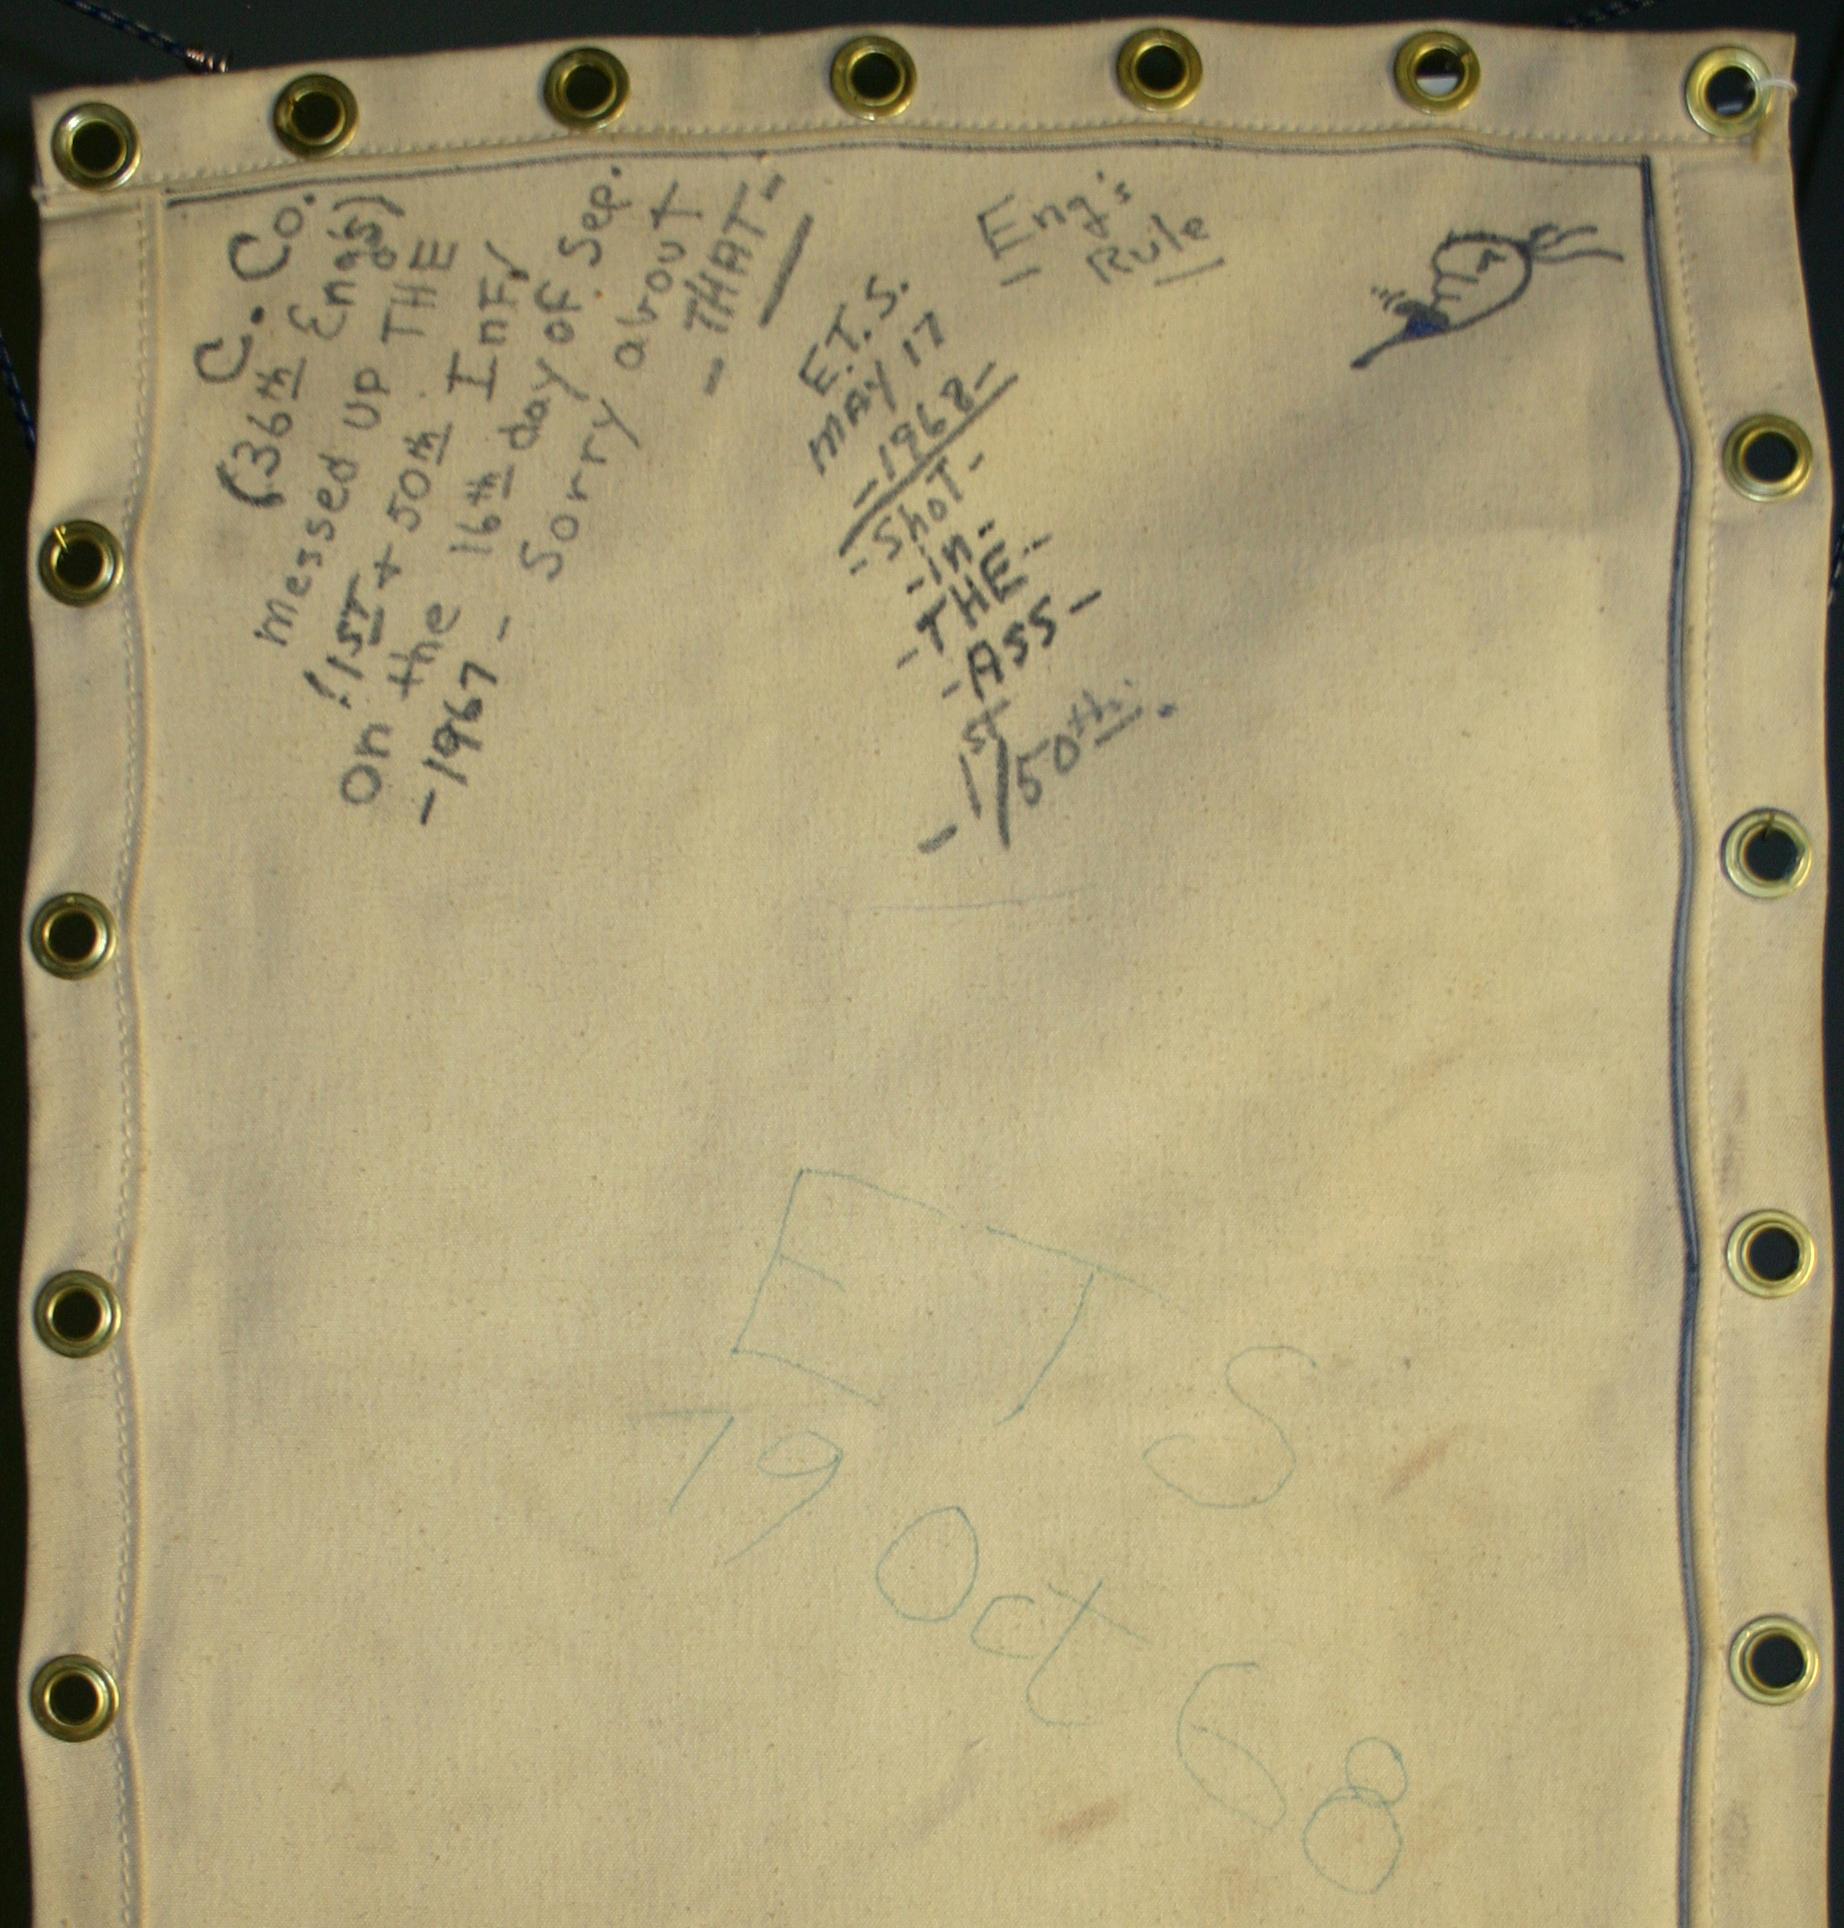 C. Co.
(36th Eng's)
messed up THE
! 1ST + 50th InF,
On the 16th day of Sep.
-1967 - Sorry about
- THAT -
E.T.S.
MAY 17
-1968-
- ShoT -
- in -
- THE -
- ASS -
- 1ST/50th.
Eng's
Rule
ETS
19 Oct 68